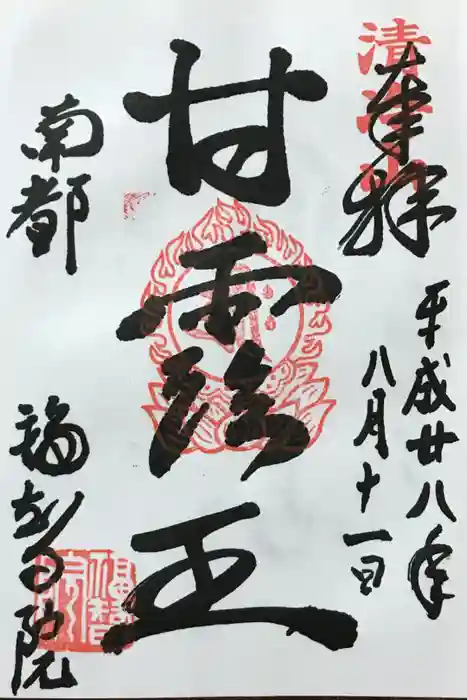 奉拝
平成廿八年
八月十一日
甘露王
南都
福智院